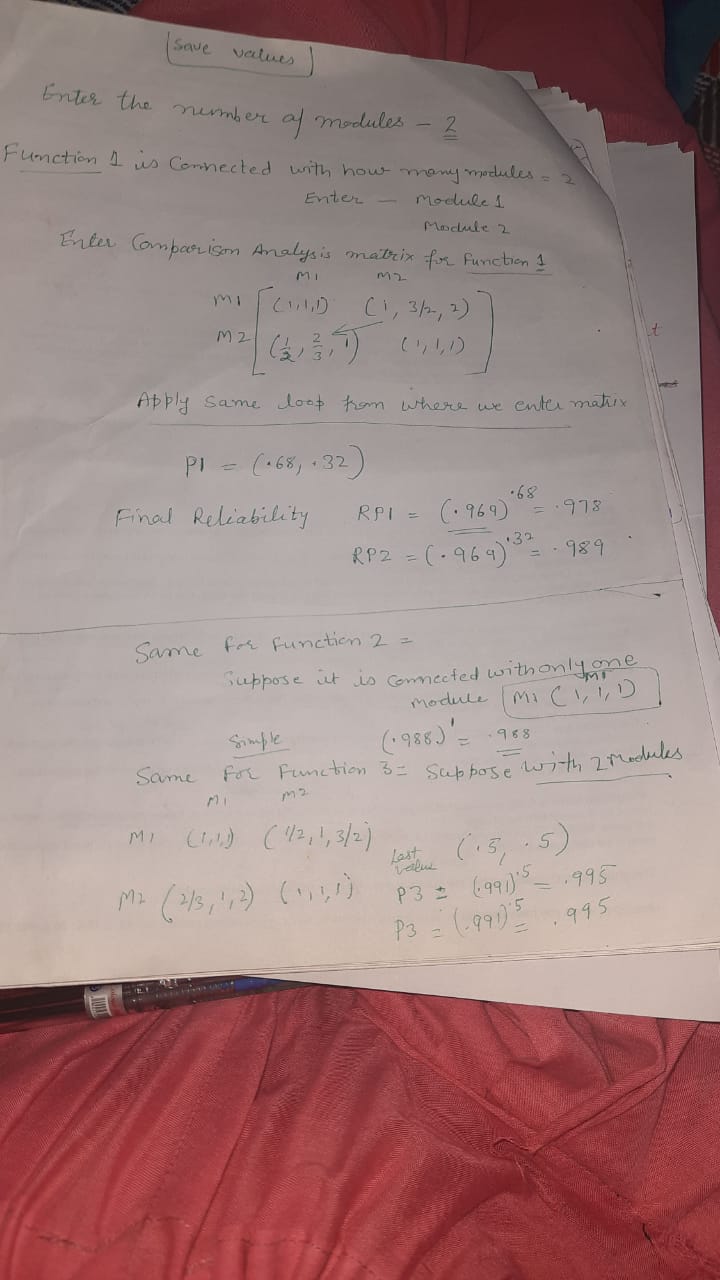 Save values
Enter the number of modules - 2
Function 1 is Connected with how many modules = 2
Enter - Module 1
Module 2
Enter Comparison Analysis matrix for Function 1
M1 M2
M1 (1,1,1) (1, 3/2, 2)
M2 (1/2, 2/3, 1) (1,1,1)
Apply same loop from where we enter matrix
P1 = (.68, .32)
Final Reliability RP1 = (.969)^.68 = .978
RP2 = (.969)^.32 = .989
Same for function 2 =
Suppose it is connected with only one
module M1 M1 (1,1,1)
Simple (.988)^1 = .988
Same for Function 3 = Suppose with 2 modules
M1 M2
M1 (1,1,1) (1/2, 1, 3/2)
Last value (.5, .5)
M2 (2/3, 1, 2) (1,1,1) P3 = (.991)^.5 = .995
P3 = (.991)^.5 = .995